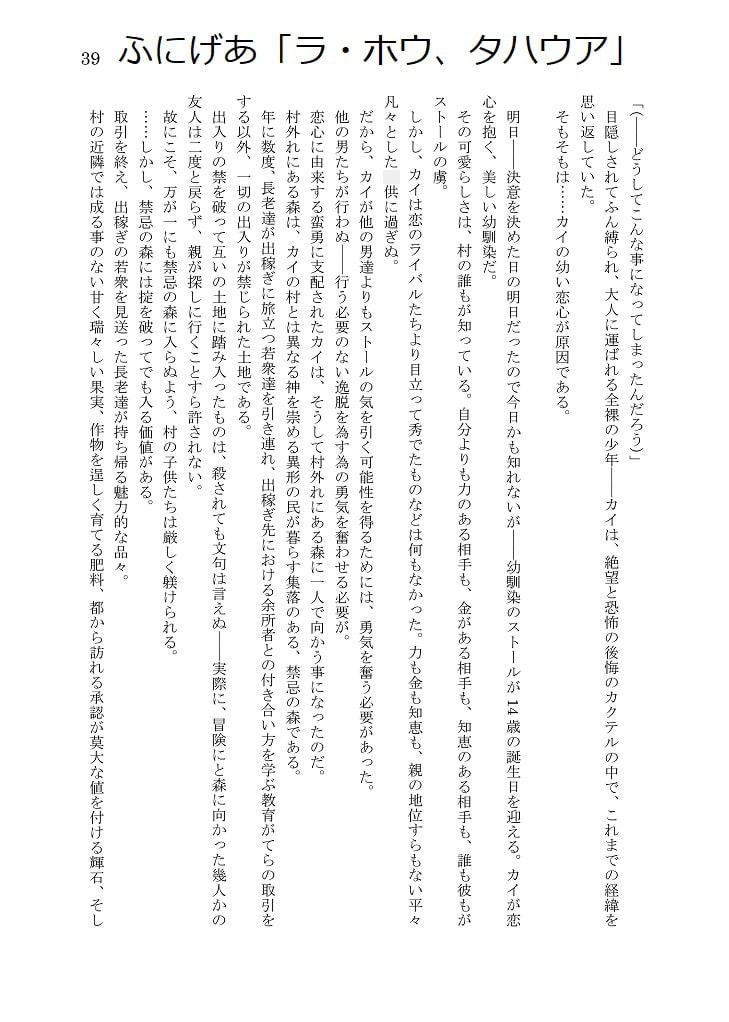 39
ふにげあ「ラ・ホウ、タハウア」
「(――どうしてこんな事になってしまったんだろう)」
目隠しされてふん縛られ、大人に運ばれる全裸の少年――カイは、絶望と恐怖の後悔のカクテルの中で、これまでの経緯を
思い返していた。
そもそもは……カイの幼い恋心が原因である。
明日――決意を決めた日の明日だったので今日かも知れないが――幼馴染のストールが14歳の誕生日を迎える。カイが恋
心を抱く、美しい幼馴染だ。
その可愛らしさは、村の誰もが知っている。自分よりも力のある相手も、金がある相手も、知恵のある相手も、誰も彼もが
ストールの虜。
しかし、カイは恋のライバルたちより目立って秀でたものなどは何もなかった。力も金も知恵も、親の地位すらもない平々
凡々とした 供に過ぎぬ。
だから、カイが他の男達よりもストールの気を引く可能性を得るためには、勇気を奮う必要があった。
他の男たちが行わぬ――行う必要のない逸脱を為す為の勇気を奮わせる必要が。
恋心に由来する蛮勇に支配されたカイは、そうして村外れにある森に一人で向かう事になったのだ。
村外れにある森は、カイの村とは異なる神を崇める異形の民が暮らす集落のある、禁忌の森である。
年に数度、長老達が出稼ぎに旅立つ若衆達を引き連れ、出稼ぎ先における余所者との付き合い方を学ぶ教育がてらの取引を
する以外、一切の出入りが禁じられた土地である。
出入りの禁を破って互いの土地に踏み入ったものは、殺されても文句は言えぬ――実際に、冒険にと森に向かった幾人かの
友人は二度と戻らず、親が探しに行くことすら許されない。
故にこそ、万が一にも禁忌の森に入らぬよう、村の子供たちは厳しく躾けられる。
……しかし、禁忌の森には掟を破ってでも入る価値がある。
取引を終え、出稼ぎの若衆を見送った長老達が持ち帰る魅力的な品々。
村の近隣では成る事のない甘く瑞々しい果実、作物を逞しく育てる肥料、都から訪れる承認が莫大な値を付ける輝石、そし